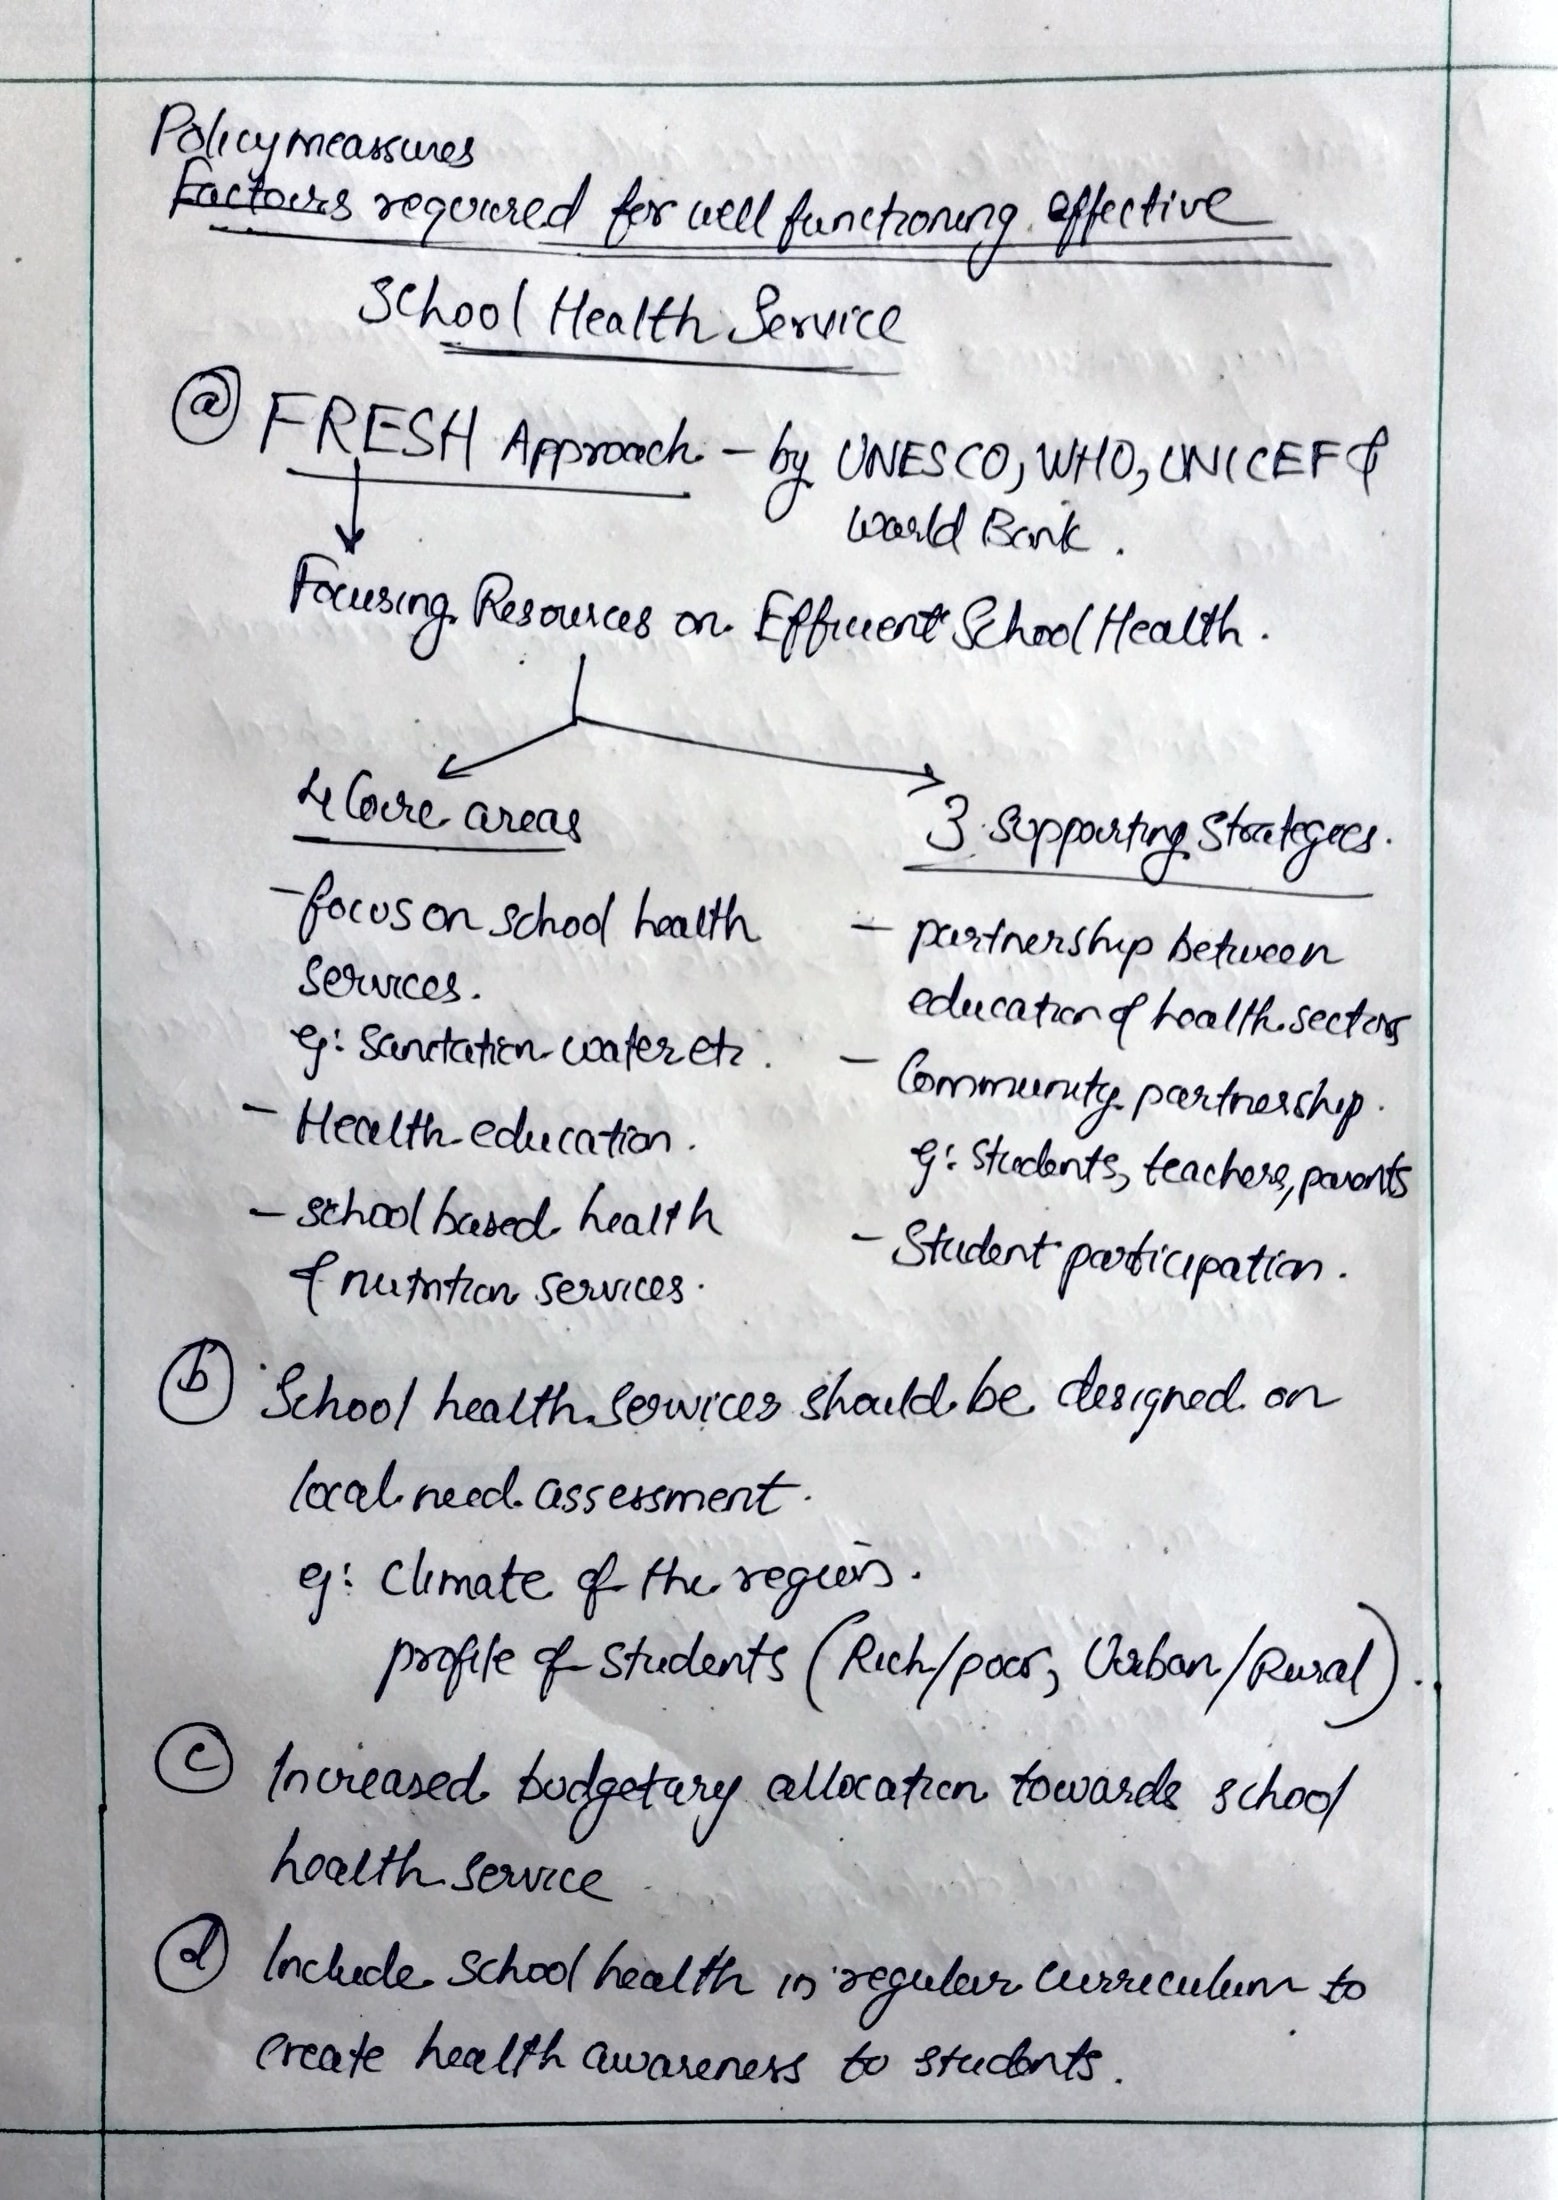 Policy measures
Factors required for well functioning effective
School Health Service
(a) FRESH Approach - by UNESCO, WHO, UNICEF &
World Bank.
Focusing Resources on Efficient School Health.
4 Core areas
- focus on school health
services.
eg: Sanitation water etc.
- Health education.
- school based health
& nutrition services.
3 Supporting Strategies.
- partnership between
education & health sectors
- Community partnership.
eg: students, teachers, parents
- Student participation.
(b) School health services should be designed on
local need assessment.
eg: climate of the region.
profile of students (Rich/poor, Urban/Rural).
(c) Increased budgetary allocation towards school
health service
(d) Include school health in regular curriculum to
create health awareness to students.